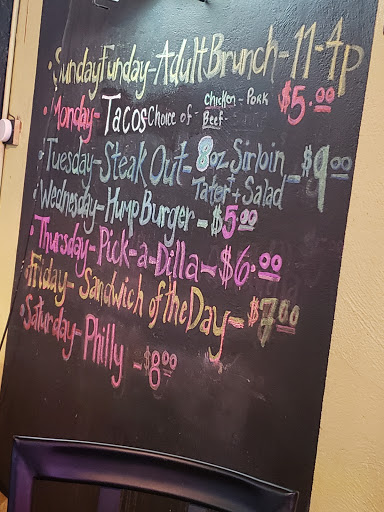 • Sunday Funday - Adult Brunch - 11-4p
• Monday - Tacos Choice of - Chicken - Pork $5.00
Beef -
• Tuesday - Steak Out - 8oz Sirloin - $9.00
Tater + Salad
• Wednesday - Hump Burger - $5.00
• Thursday - Pick-a-Dilla - $6.00
• Friday - Sandwich of the Day - $7.00
• Saturday - Philly - $8.00